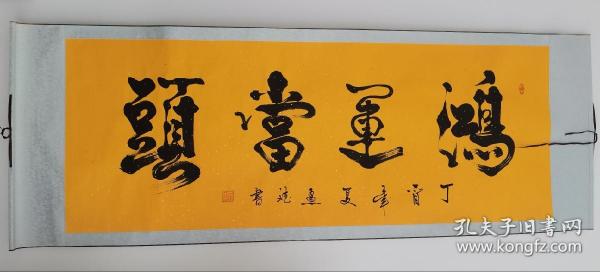 鴻運當頭
丁酉年夏魚
書
孔夫子旧书网
www.kongfz.com